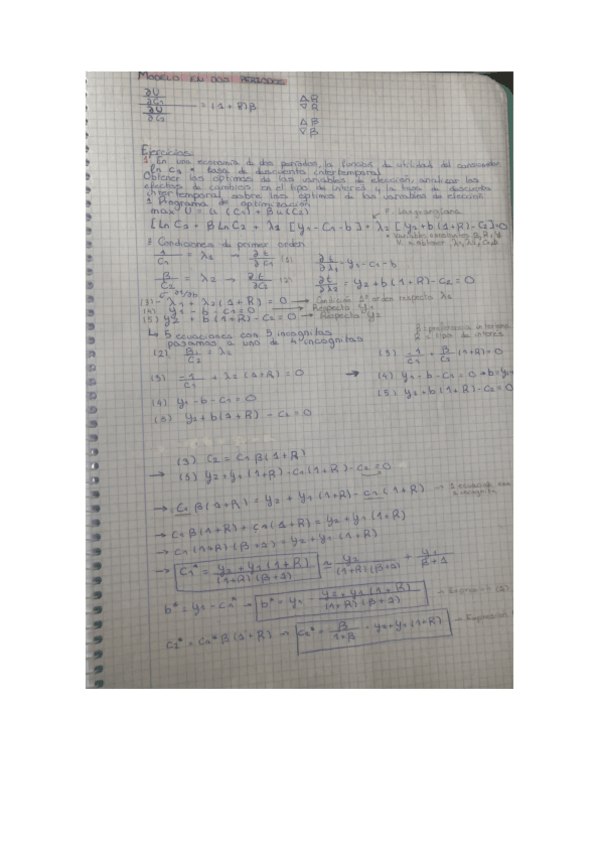 MODELO EN DOS PERIODOS
∂U/∂C1 / ∂U/∂C2 = (1+R)β
△ R
▽ R
△ β
▽ β
Ejercicios:
1. En una economía de dos periodos, la función de utilidad del consumidor
ln C1 tasa de descuento intertemporal
Obtener los óptimos de las variables de elección, analizar los
efectos de cambios en el tipo de interés y la tasa de descuento
intertemporal sobre los óptimos de las variables de elección
1. Programa de optimización
max U = u(C1) + βu(C2)
F. Lagrangiana
[Ln C1 + β Ln C2 + λ1 [y1 - C1 - b] + λ2 [y2 + b(1+R) - C2] = 0
* Variables
3 Condiciones de primer orden
1/C1 = λ1 → ∂L/∂C1 (1)
∂L/∂λ1 = y1 - C1 - b
β/C2 = λ2 → ∂L/∂C2 (2)
∂L/∂λ2 = y2 + b(1+R) - C2 = 0
∂L/∂b
(3) - λ1 + λ2(1+R) = 0 → Condición 1º orden respecto
(4) y1 - b - C1 = 0 → Respecto
(5) y2 + b(1+R) - C2 = 0 → Respecto
β: preferencia
R = tipo de interés
↳ 5 ecuaciones con 5 incognitas
pasamos a una de 4 incognitas
(2) β/C2 = λ2
(3) -1/C1 + β/C2 (1+R) = 0
(3) -1/C1 + λ2(1+R) = 0
→ (4) y1 - b - C1 = 0 → b = y1
(4) y1 - b - C1 = 0
(5) y2 + b(1+R) - C2 = 0
(5) y2 + b(1+R) - C2 = 0
(3) C2 = C1 β(1+R)
→ (5) y2 + y1(1+R) - C1(1+R) - C2 = 0
→ C1 β(1+R) = y2 + y1(1+R) - C1(1+R) → 1 ecuación con
1 incognita
→ C1 β(1+R) + C1(1+R) = y2 + y1(1+R)
→ C1(1+R)(β+1) = y2 + y1(1+R)
→ C1* = y2 + y1(1+R) / (1+R)(β+1) = y2 / (1+R)(β+1) + y1 / β+1
b* = y1 - C1* → b* = y1 - y2 + y1(1+R) / (1+R)(β+1)
C2* = C1* β(1+R) → C2* = β / 1+β · y2 + y1(1+R)